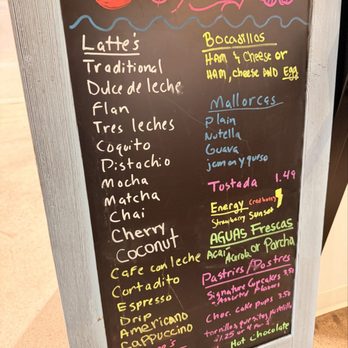 Latte's
Traditional
Dulce de leche
Flan
Tres leches
Coquito
Pistachio
Mocha
Matcha
Chai
Cherry
Coconut
Cafe con leche
Cortadito
Espresso
Drip
Americano
Cappuccino
Bocadillos
Ham & cheese or
Ham, cheese and Egg
Mallorcas
plain
Nutella
Guava
jamon y queso
Tostada 1.49
Energy
Strawberry Sunset
AGUAS FRESCAS
Acai, Acerola or Parcha
Pastries/Postres
Signature Cupcakes 3.50
Assorted Flavors
Choc. cake pops 3.50
Hot Chocolate